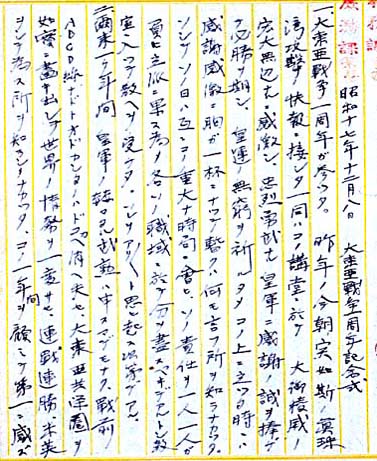 昭和十七年十二月八日　大東亜戦争一周年記念式
一、大東亜戦争一周年ガ参ツタ。昨年ノ今朝突如斯ノ真珠
湾攻撃ノ快報ニ接シタ一同ハコノ講堂ニ於テ大御稜威ノ
宏大無辺ナルニ感激シ、忠烈勇武ナル皇軍ニ感謝ノ誠ヲ捧ゲ
必勝ヲ期シ、皇運ノ無窮ヲ祈ルタメコノ上ニ立ツタ時ハ、
感謝感激ニ胸ガ一杯ニナツテ暫クハ何ノ言フ所ヲ知ラナカツタ。
ソシテソノ日ハ互ニコノ重大ナ時局ニ会ヒ、ソノ責任ヲ一人一人ガ
負ヒ立派ニ果ス為ノ各ソノ職域ニ於テ分ヲ盡スベキデアルト教
室ヘ入ツテ教ヘヲ受ケタ。ソレヲアリアリト思ヒ起ス次第デアル。
二、爾来一ケ年間皇軍ノ赫々タル武勲ハ申スマデモナク、戦前
ABCD線ナド
消ヘ失セ、大東亜共栄圏ヲ
如実ニ画キ出シテ世界ノ情勢ヲ一変サセ、連戦連勝、米英
ヲシテ為ス所ヲ知ラシメナカツタ。コノ一年間ヲ顧ミテ第一ニ感ズ